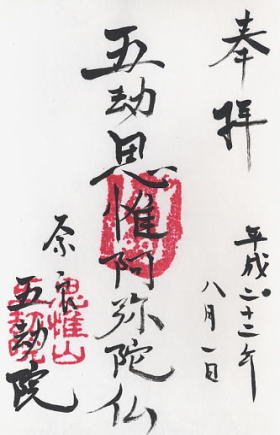 奉拝
平成二十二年
八月一日
五劫思惟阿弥陀仏
奈良
五劫院
思惟山